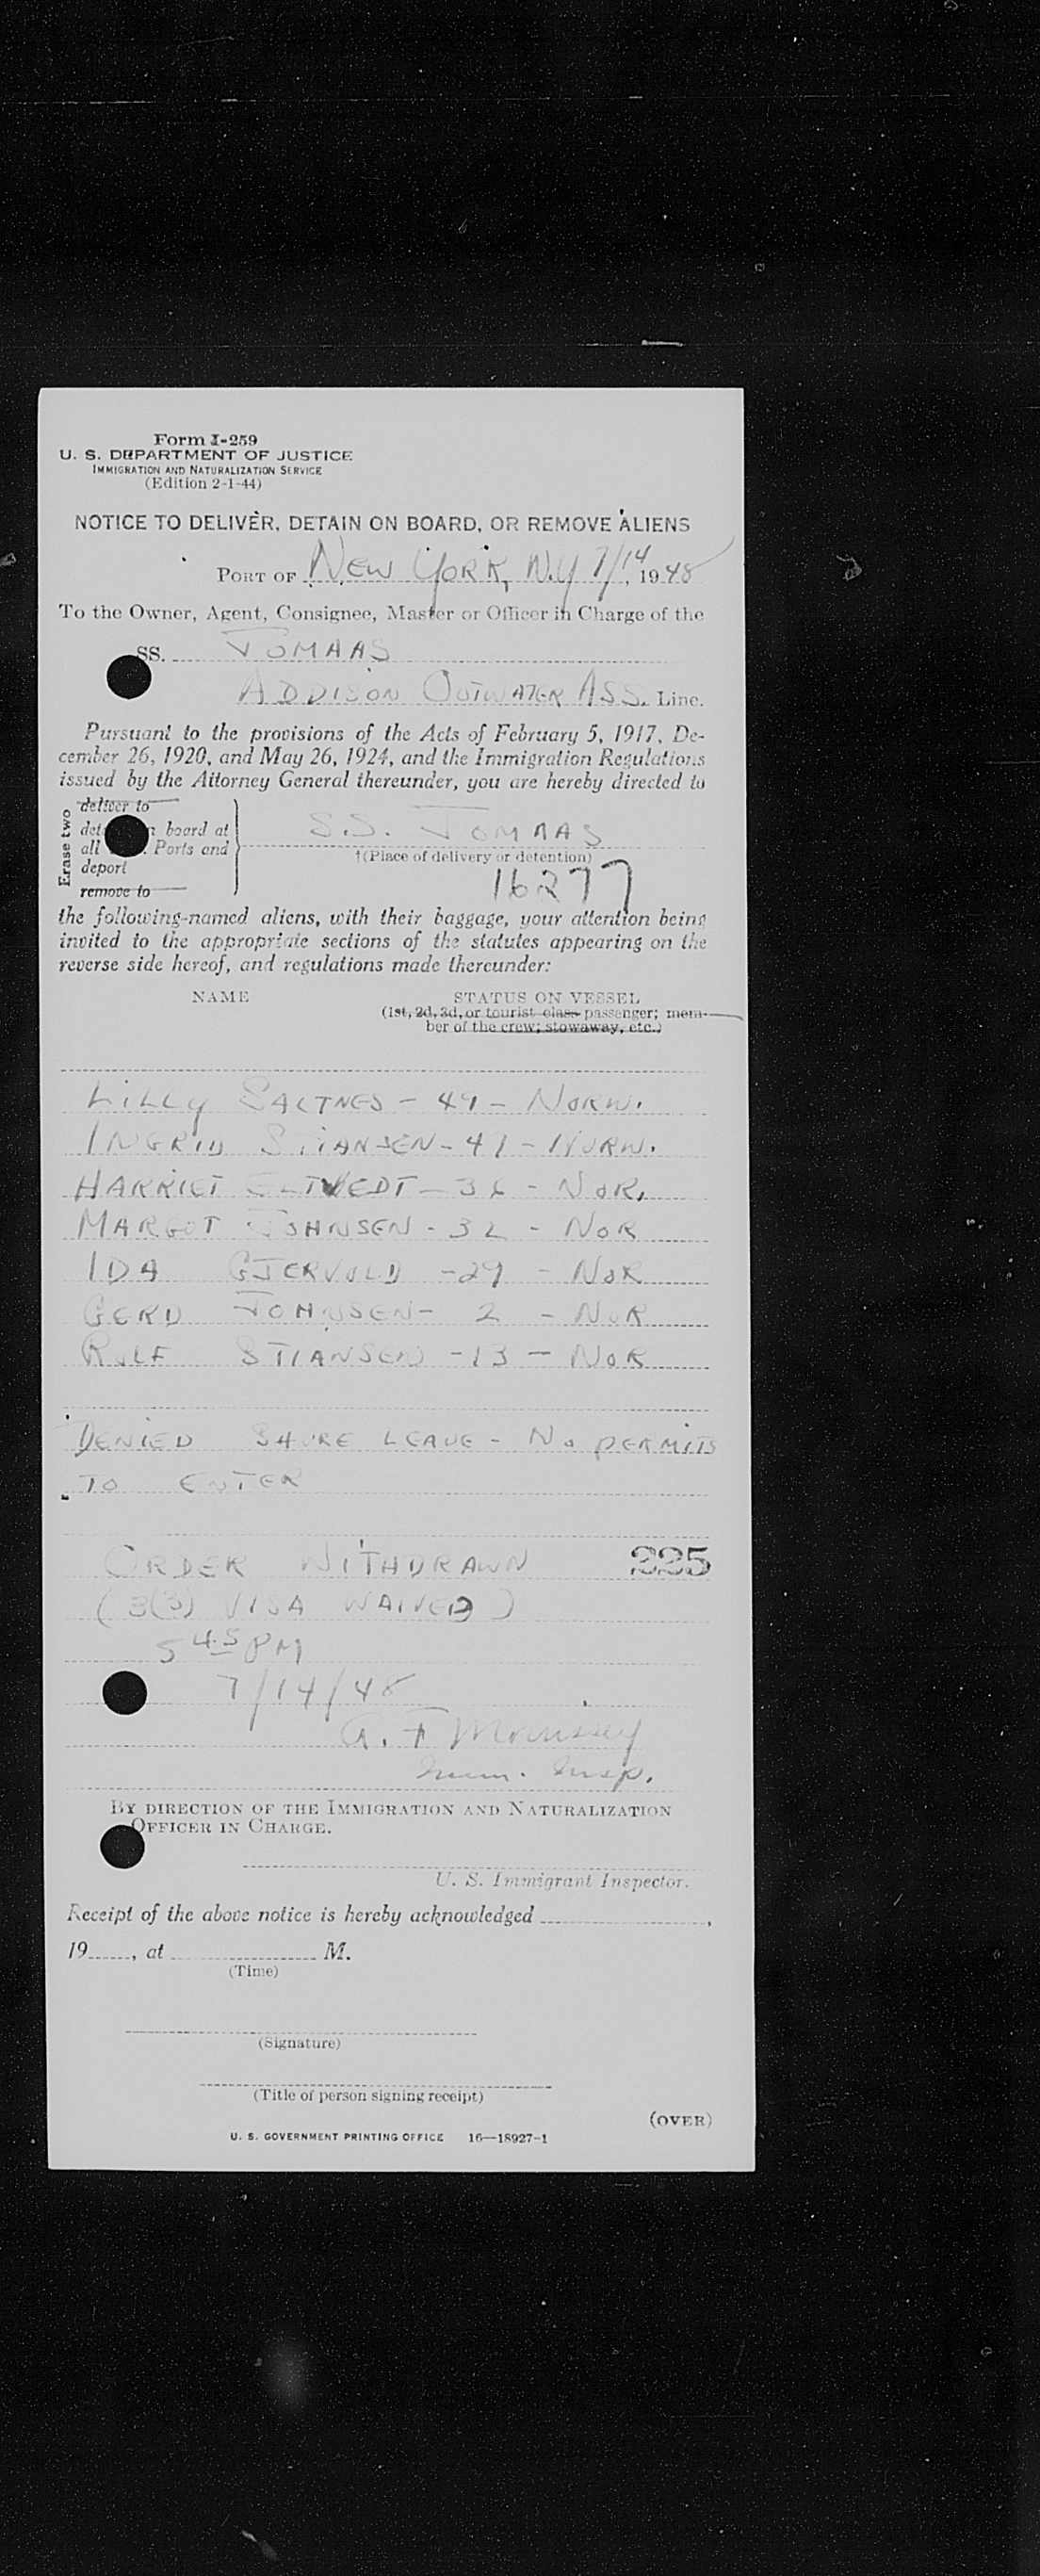 Form I-259
U. S. DEPARTMENT OF JUSTICE
IMMIGRATION AND NATURALIZATION SERVICE
(Edition 2-1-44)
NOTICE TO DELIVER, DETAIN ON BOARD, OR REMOVE ALIENS
PORT OF NEW YORK, N.Y 7/14, 1948
To the Owner, Agent, Consignee, Master or Officer in Charge of the
SS. JOMAAS
ADDISON OUTWATER ASS. Line.
Pursuant to the provisions of the Acts of February 5, 1917, De-
cember 26, 1920, and May 26, 1924, and the Immigration Regulations
issued by the Attorney General thereunder, you are hereby directed to
Erase two
deliver to
board at
all Ports and
deport
remove to
S.S. JOMAAS
†(Place of delivery or detention)
16277
the following-named aliens, with their baggage, your attention being
invited to the appropriate sections of the statutes appearing on the
reverse side hereof, and regulations made thereunder:
NAME STATUS ON VESSEL
(1st, 2d, 3d, or tourist class passenger; mem-
ber of the crew; stowaway, etc.)
LILLY SALTNES - 49 - NORW.
INGRID STIANSEN - 47 - NORW.
HARRIET ELTVEDT - 36 - NOR.
MARGOT JOHNSEN - 32 - NOR
IDA GJERVOLD - 29 - NOR
GERD JOHNSEN - 2 - NOR
ROLF STIANSEN - 13 - NOR
DENIED SHORE LEAVE - NO PERMITS
TO ENTER
ORDER WITHDRAWN 225
(3(3) VISA WAIVED)
5 45 PM
7/14/48
G. F Morrissey
Imm. Insp.
BY DIRECTION OF THE IMMIGRATION AND NATURALIZATION
OFFICER IN CHARGE.
U. S. Immigrant Inspector.
Receipt of the above notice is hereby acknowledged
19, at M.
(Time)
(Signature)
(Title of person signing receipt)
(OVER)
U. S. GOVERNMENT PRINTING OFFICE 16—18927-1